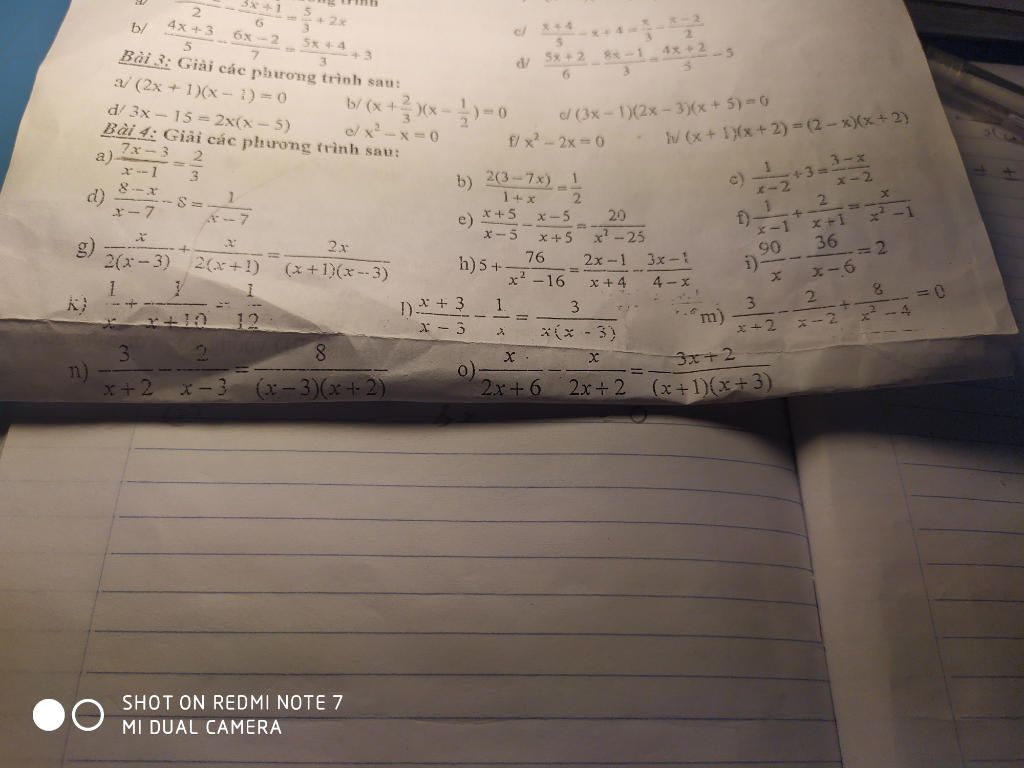 a/ 2 - (3x+1)/6 = 5/3 + 2x
c/ (x+4)/5 - x + 4 = x/3 - (x-2)/2
b/ (4x+3)/5 - (6x-2)/7 = (5x+4)/3 + 3
d/ (5x+2)/6 - (8x-1)/3 = (4x+2)/5 - 5
Bài 3: Giải các phương trình sau:
a/ (2x + 1)(x - 1) = 0 b/ (x + 2/3)(x - 1/2) = 0 c/ (3x - 1)(2x - 3)(x + 5) = 0
d/ 3x - 15 = 2x(x - 5) e/ x² - x = 0 f/ x² - 2x = 0 h/ (x + 1)(x + 2) = (2 - x)(x + 2)
Bài 4: Giải các phương trình sau:
a) (7x-3)/(x-1) = 2/3 b) 2(3-7x)/(1+x) = 1/2 c) 1/(x-2) + 3 = (3-x)/(x-2)
d) (8-x)/(x-7) - 8 = 1/(x-7) e) (x+5)/(x-5) - (x-5)/(x+5) = 20/(x²-25) f) 1/(x-1) + 2/(x+1) = x/(x²-1)
g) x/(2(x-3)) + x/(2(x+1)) = 2x/((x+1)(x-3)) h) 5 + 76/(x²-16) = (2x-1)/(x+4) - (3x-1)/(4-x) i) 90/x - 36/(x-6) = 2
k) 1/x + 1/(x+10) = 1/12 l) (x+3)/(x-3) - 1/x = 3/(x(x-3)) m) 3/(x+2) - 2/(x-2) + 8/(x²-4) = 0
n) 3/(x+2) - 2/(x-3) = 8/((x-3)(x+2)) o) x/(2x+6) - x/(2x+2) = (3x+2)/((x+1)(x+3))
SHOT ON REDMI NOTE 7
MI DUAL CAMERA